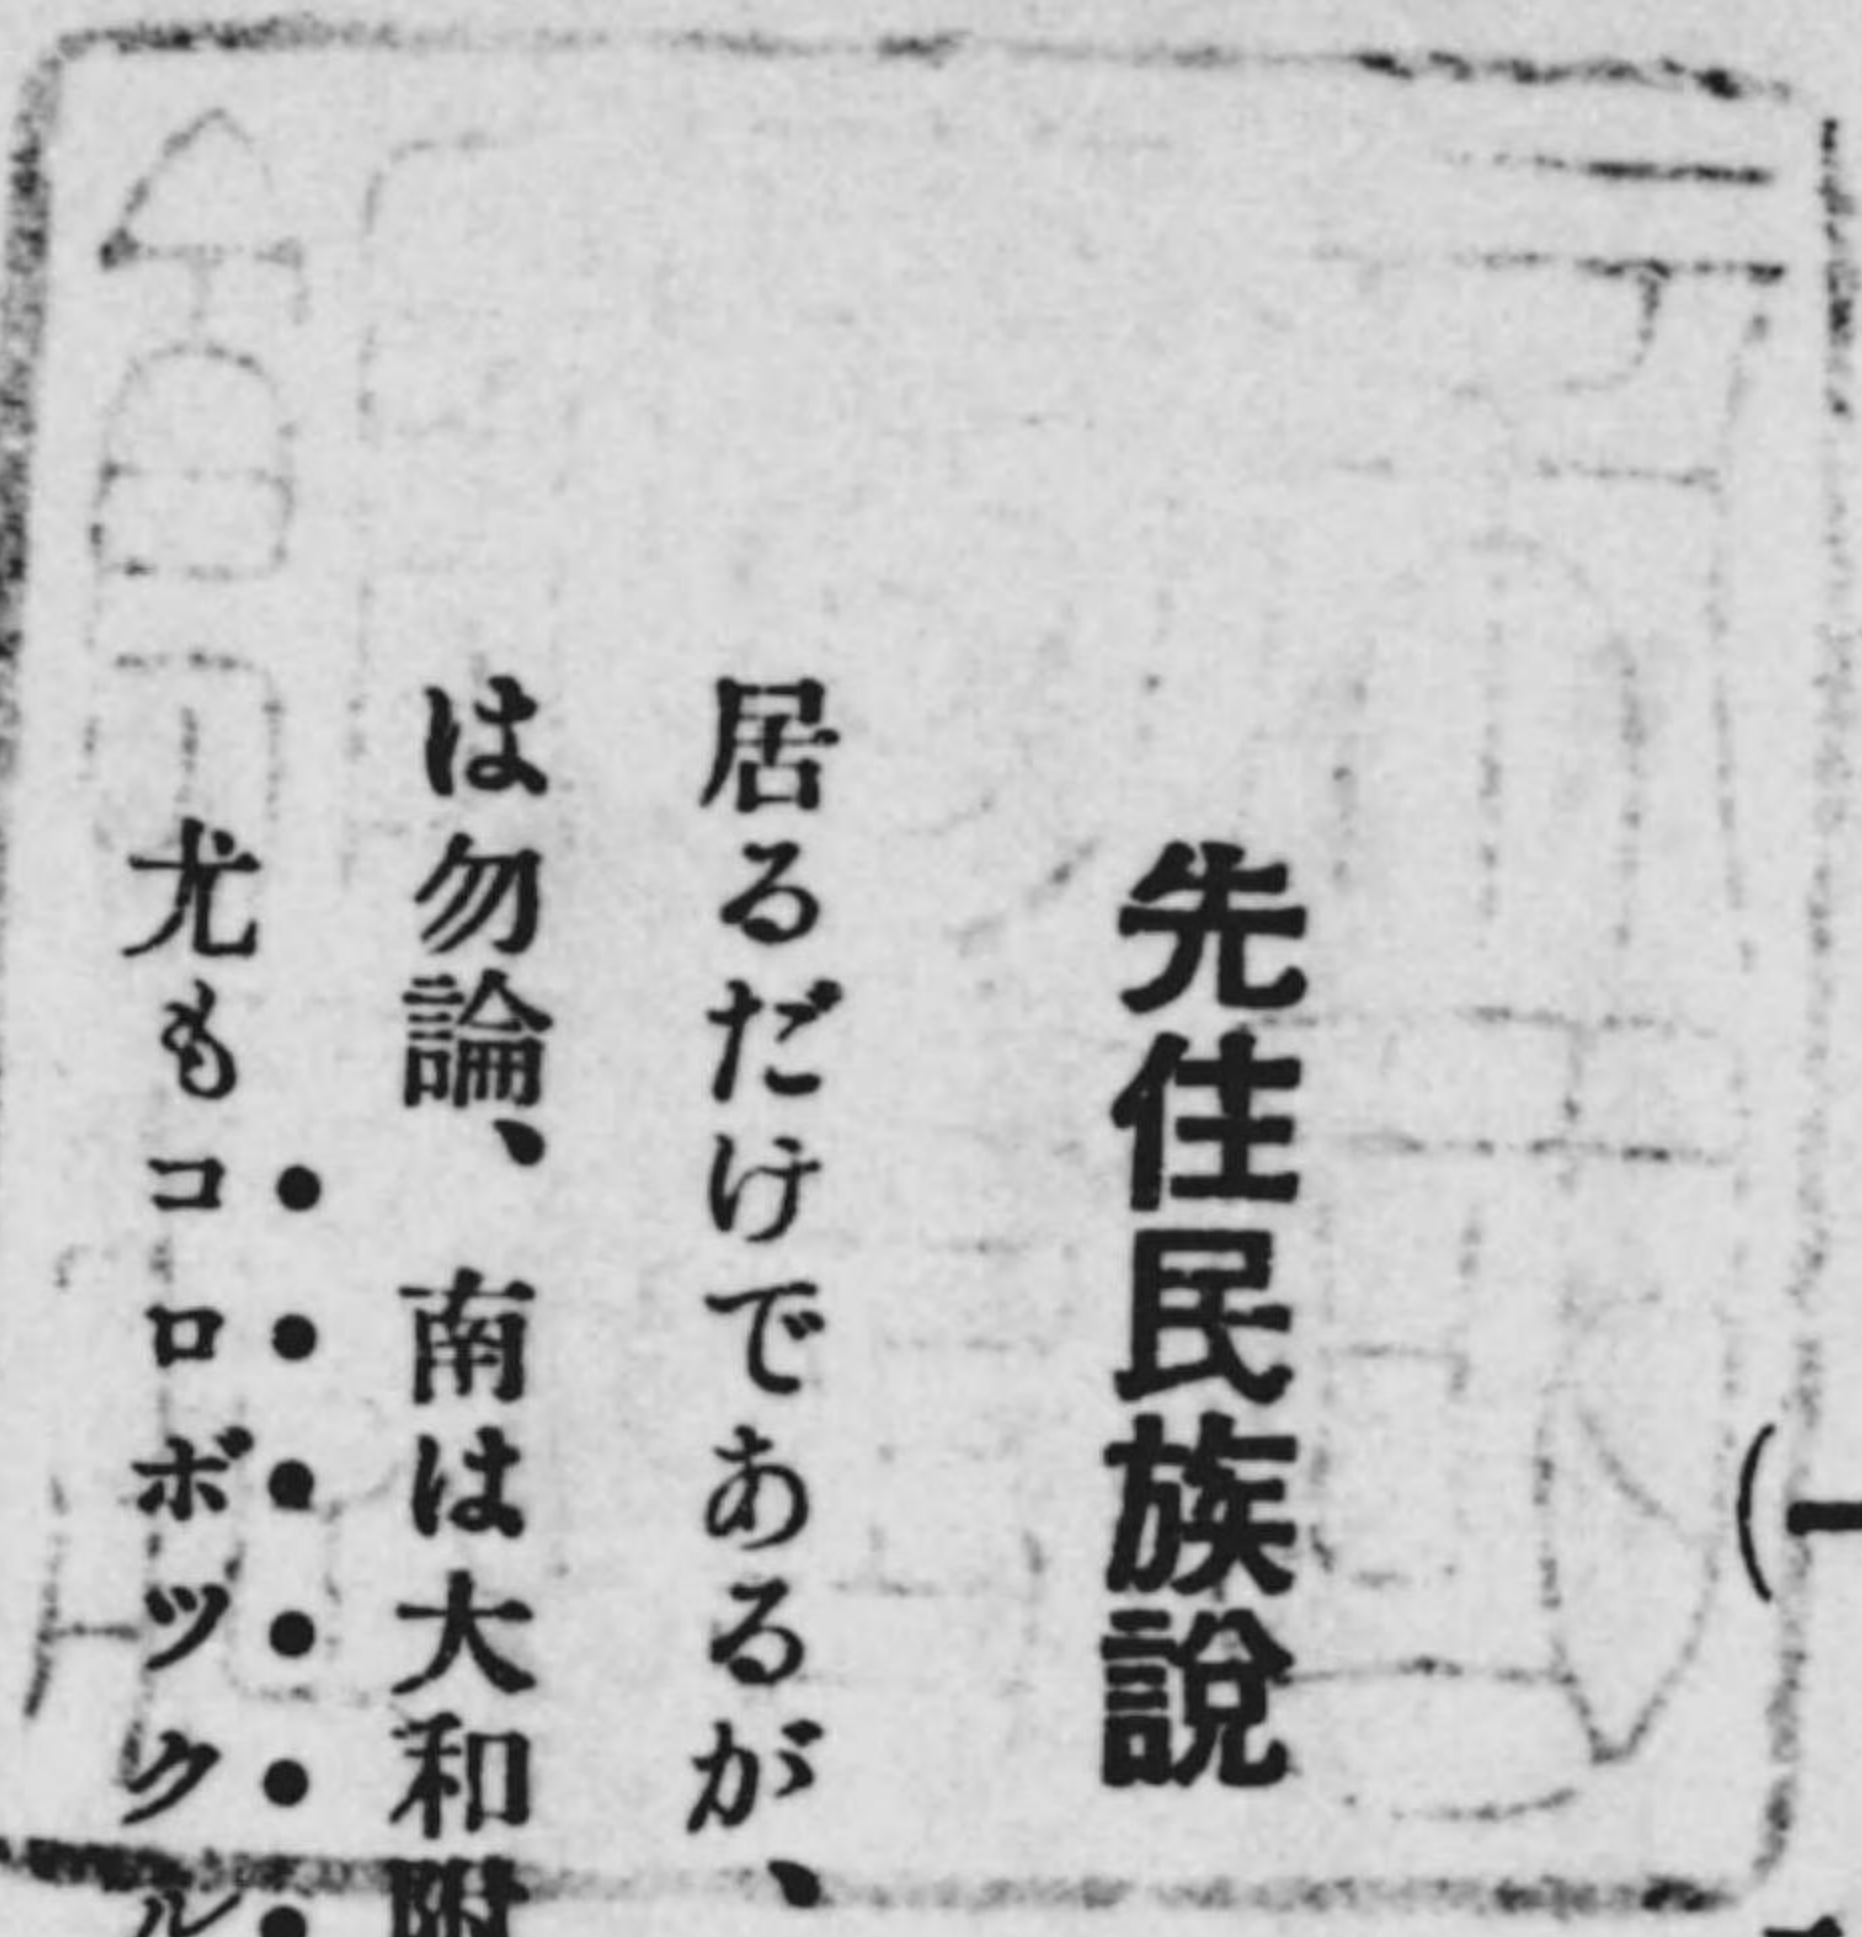 (一
先住民族說
居るだけであるが、
は勿論、南は大和附
尤もコロボックル